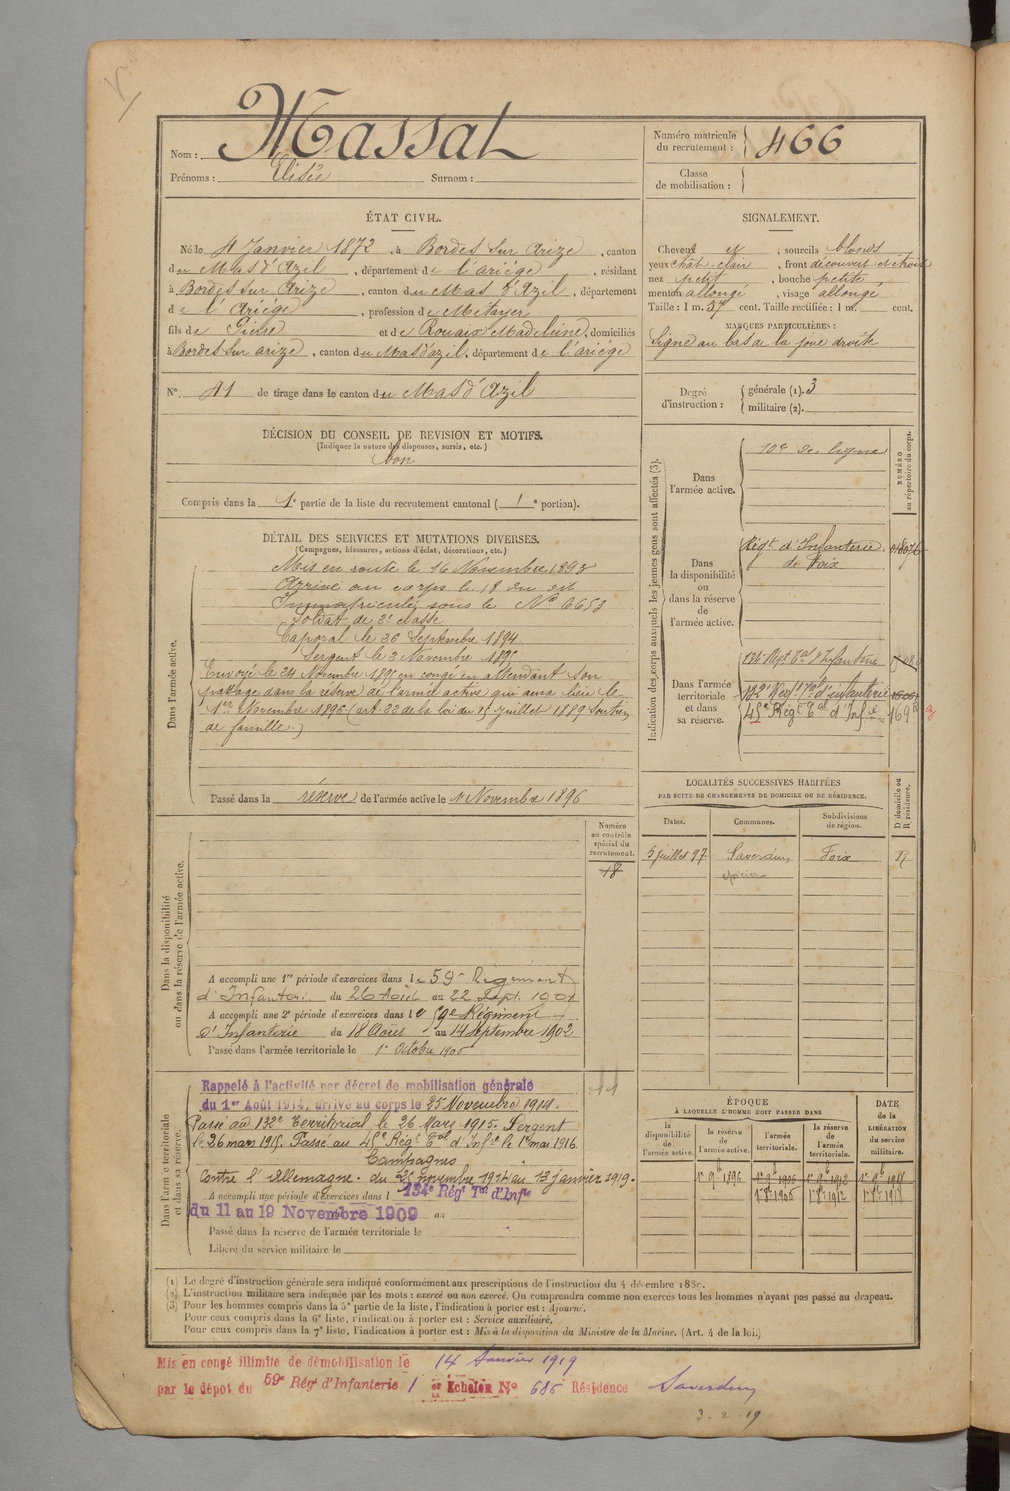 Nom : Massat
Prénoms : Elisée Surnom :
Numéro matricule
du recrutement : 466
Classe
de mobilisation :
ÉTAT CIVIL.
Né le 4 Janvier 1872, à Bordes sur Arize, canton
du Mas d'Azil, département de l'ariége, résidant
à Bordes sur Arize, canton du Mas d'Azil, département
de l'Ariége, profession de Metayer
fils de Pierre et de Rouaix Madeleine, domiciliés
à Bordes sur arize, canton du Mas d'azil, département de l'ariége
N° 41 de tirage dans le canton du Mas d'Azil
DÉCISION DU CONSEIL DE REVISION ET MOTIFS.
(Indiquer la nature des dispenses, sursis, etc.)
bon
Compris dans la 1e partie de la liste du recrutement cantonal (1e portion).
SIGNALEMENT.
Cheveux et, sourcils blonds
yeux chât. clair, front découvert et étroit
nez petit, bouche petite
menton allongé, visage allongé
Taille : 1 m. 57 cent. Taille rectifiée : 1 m. cent.
MARQUES PARTICULIÈRES :
Signe au bas de la joue droite
Degré
d'instruction :
générale (1). 3
militaire (2).
DÉTAIL DES SERVICES ET MUTATIONS DIVERSES.
(Campagnes, blessures, actions d'éclat, décorations, etc.)
Dans l'armée active.
Mis en route le 16 Novembre 1893
Arrivé au corps le 18 du dit
Immatriculé sous le No 6653
Soldat de 2e classe
Caporal le 26 Septembre 1894
Sergent le 3 Novembre 1895
Envoyé le 24 Novembre 1895 en congé en attendant son
passage dans la réserve de l'armée active qui aura lieu le
1er Novembre 1896 (art. 22 de la loi du 15 juillet 1889 Soutien
de famille.)
Passé dans la réserve de l'armée active le 1 Novembre 1896
Indication des corps auxquels les jeunes gens sont affectés (3).
NUMÉRO
au répertoire du corps.
Dans
l'armée active.
10e de ligne
Dans
la disponibilité
ou
dans la réserve
de
l'armée active.
Régt d'Infanterie
de Foix
Dans l'armée
territoriale
et dans
sa réserve.
134 Régt Tal d'Infanterie
132e Régt Tal d'infanterie
45e Régt Tal d'Infie
LOCALITÉS SUCCESSIVES HABITÉES
PAR SUITE DE CHANGEMENTS DE DOMICILE OU DE RÉSIDENCE.
Dates. Communes. Subdivisions
de région.
D domicile ou
R résidence.
5 juillet 97 Saverdun Foix R
épicier
Numéro
au contrôle
spécial du
recrutement.
18
Dans la disponibilité
ou dans la réserve de l'armée active.
A accompli une 1re période d'exercices dans le 59e Régiment
d'Infanterie du 26 Août au 22 Sept. 1901
A accompli une 2e période d'exercices dans le 59e Régiment
d'Infanterie du 18 Août au 14 Septembre 1902
Passé dans l'armée territoriale le 1er Octobre 1906
Dans l'armée territoriale
et dans sa réserve.
Rappelé à l'activité par décret de mobilisation générale
du 1er Août 1914, arrivé au corps le 25 Novembre 1914.
Passé au 132e Territorial le 26 Mars 1915. Sergent
le 26 mars 1915. Passé au 45e Régt Tal d'Infie le 1er mai 1916.
Campagnes
Contre l'Allemagne. du 25 novembre 1914 au 13 janvier 1919.
A accompli une période d'Exercices dans l 134e Régt Tal d'Infie
du 11 au 19 Novembre 1909 au
Passé dans la réserve de l'armée territoriale le
Libéré du service militaire le
ÉPOQUE
A LAQUELLE L'HOMME DOIT PASSER DANS
la
disponibilité
de
l'armée active.
la réserve
de
l'armée active.
l'armée
territoriale.
la réserve
de
l'armée
territoriale.
DATE
de la
LIBÉRATION
du service
militaire.
(1) Le degré d'instruction générale sera indiqué conformément aux prescriptions de l'instruction du 4 décembre 1889.
(2) L'instruction militaire sera indiquée par les mots : exercé ou non exercé. On comprendra comme non exercés tous les hommes n'ayant pas passé au drapeau.
(3) Pour les hommes compris dans la 5e partie de la liste, l'indication à porter est : Ajourné.
Pour ceux compris dans la 6e liste, l'indication à porter est : Service auxiliaire.
Pour ceux compris dans la 7e liste, l'indication à porter est : Mis à la disposition du Ministre de la Marine. (Art. 4 de la loi.)
Mis en congé illimité de démobilisation le 14 Janvier 1919
par le dépôt du 59e Régt d'Infanterie 1er Echelon No 686 Résidence Saverdun
3-2-19